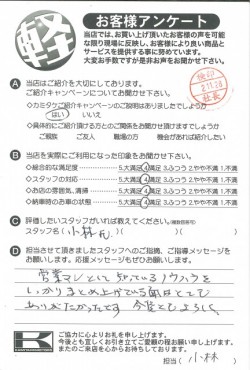 軽
お客様アンケート
当店では、お買い上げ頂いたお客様の声を可能
な限り現場に反映し、お客様により良い商品と
サービスを提供する事に努めています。
大変お手数ですが是非お声をお聞かせ下さい。
A 当店はご紹介を大切にしております。
ご紹介キャンペーンについてお聞かせ下さい。
◇カミタケご紹介キャンペーンのご説明はありましたでしょうか
はい いいえ
◇具体的にご紹介頂ける方とのご関係をお聞かせ頂けますでしょうか
ご親族 ご友人 職場の方 機会があれば紹介したい
B 当店を実際にご利用になった印象をお聞かせ下さい。
◇総合的な満足度 5.大満足 4.満足 3.ふつう 2.やや不満 1.不満
◇スタッフの対応 5.大満足 4.満足 3.ふつう 2.やや不満 1.不満
◇お店の雰囲気、清掃 5.大満足 4.満足 3.ふつう 2.やや不満 1.不満
◇納車時のお車の状態 5.大満足 4.満足 3.ふつう 2.やや不満 1.不満
C 評価したいスタッフがいれば教えてください。(複数回答可)
スタッフ名( 小林氏 )
D 担当させて頂きましたスタッフへのご指摘、ご応援メッセージを
お願いします。応援メッセージもぜひお願いします。
営業マンとして知っているノウハウを
しっかりまとめ上げている面はとても
ありがたかったです 今後ともよろしく
K
ご協力に心よりお礼を申し上げます。
今後とも宜しくお引き立てご愛顧の程お願い申し上げます。
またのご来店を心からお待ちしております。
担当( 小林 )